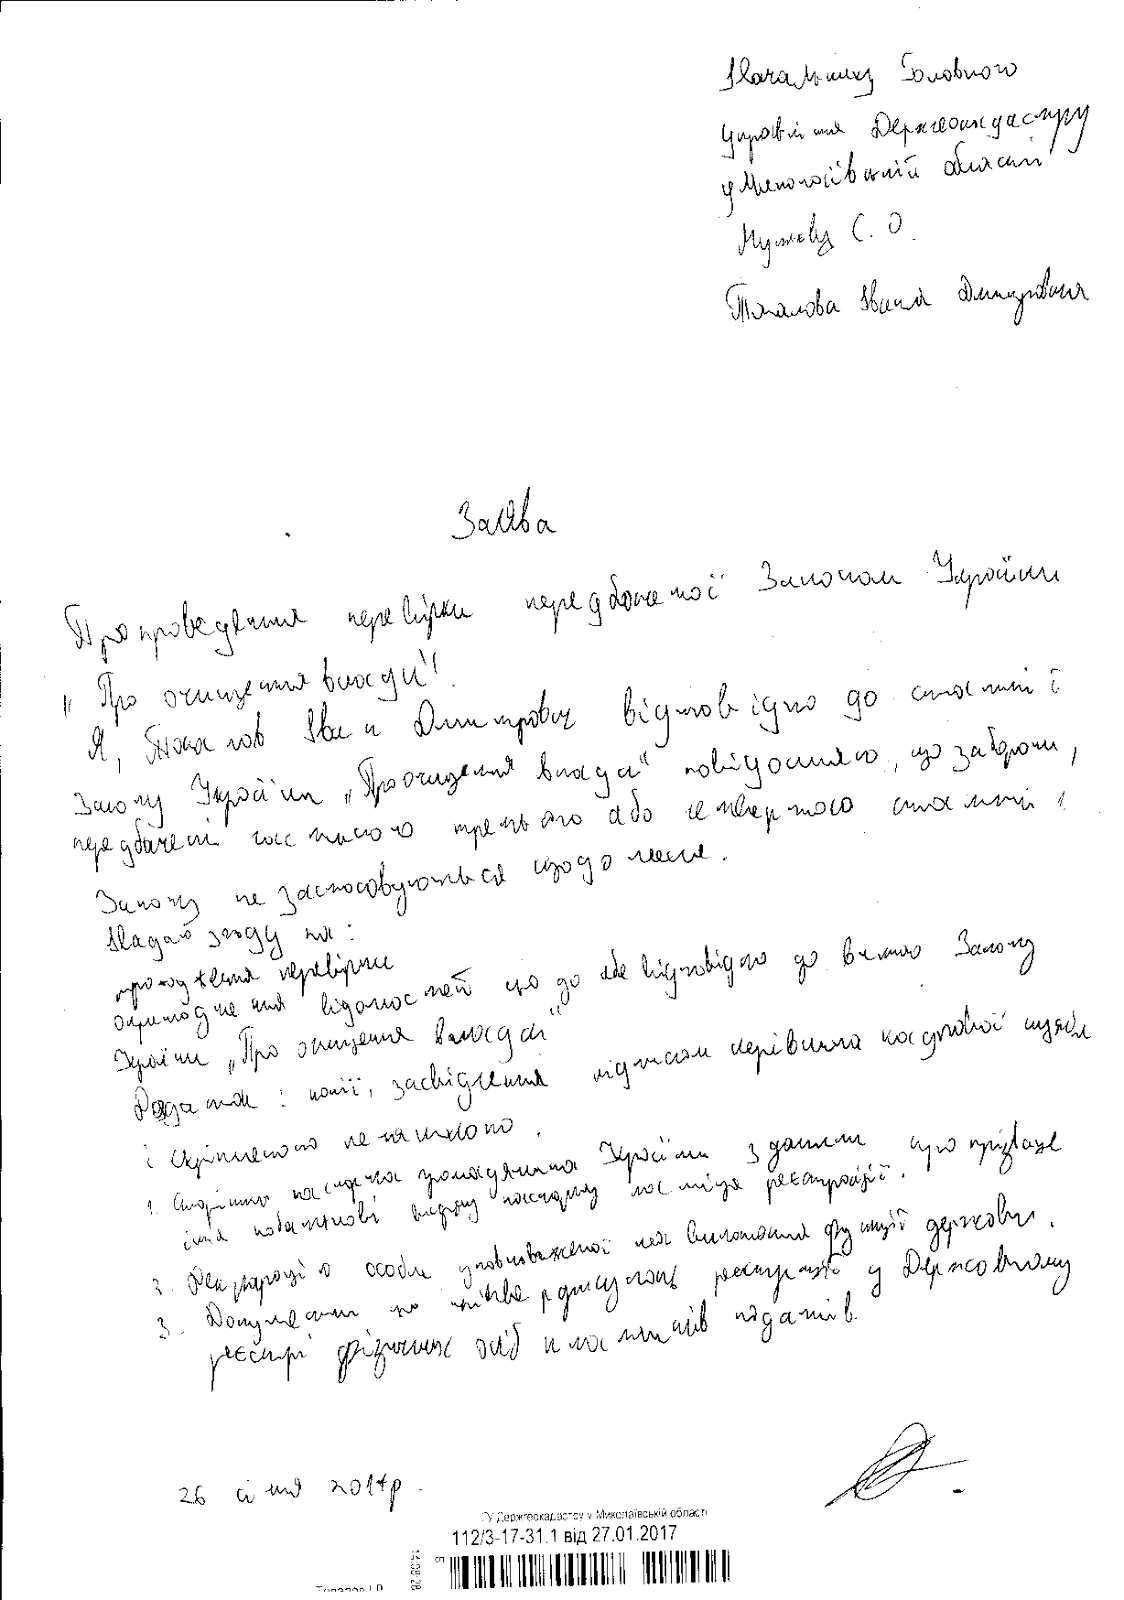 Начальнику Головного
управління Держгеокадастру
у Миколаївській області
С. О.
Топалова Івана Дмитровича
Заява
Про проведення перевірки передбаченої Законом України
„Про очищення влади".
Я, Топалов Іван Дмитрович відповідно до статті 4
Закону України „Про очищення влади" повідомляю, що заборони,
передбачені частиною третьою або четвертою статті 1
Закону не застосовуються щодо мене.
Надаю згоду на:
проходження перевірки
оприлюднення відомостей що до мене відповідно до вимог Закону
України „Про очищення влади"
Додаток: копії, засвідчення підписом керівника кадрової служби
і скріпленого печаткою.
1. Сторінки паспорта громадянина України з даними про прізвище
ім'я видачу паспорту та місця реєстрації.
2. Декларації особи уповноваженої на виконання функцій держави.
3. Документи що підтверджують реєстрацію у Державному
реєстрі фізичних осіб платників податків.
26 січня 2017р.
ГУ Держгеокадастру у Миколаївській області
112/3-17-31.1 від 27.01.2017
14:08:28
Топалов І.Д.